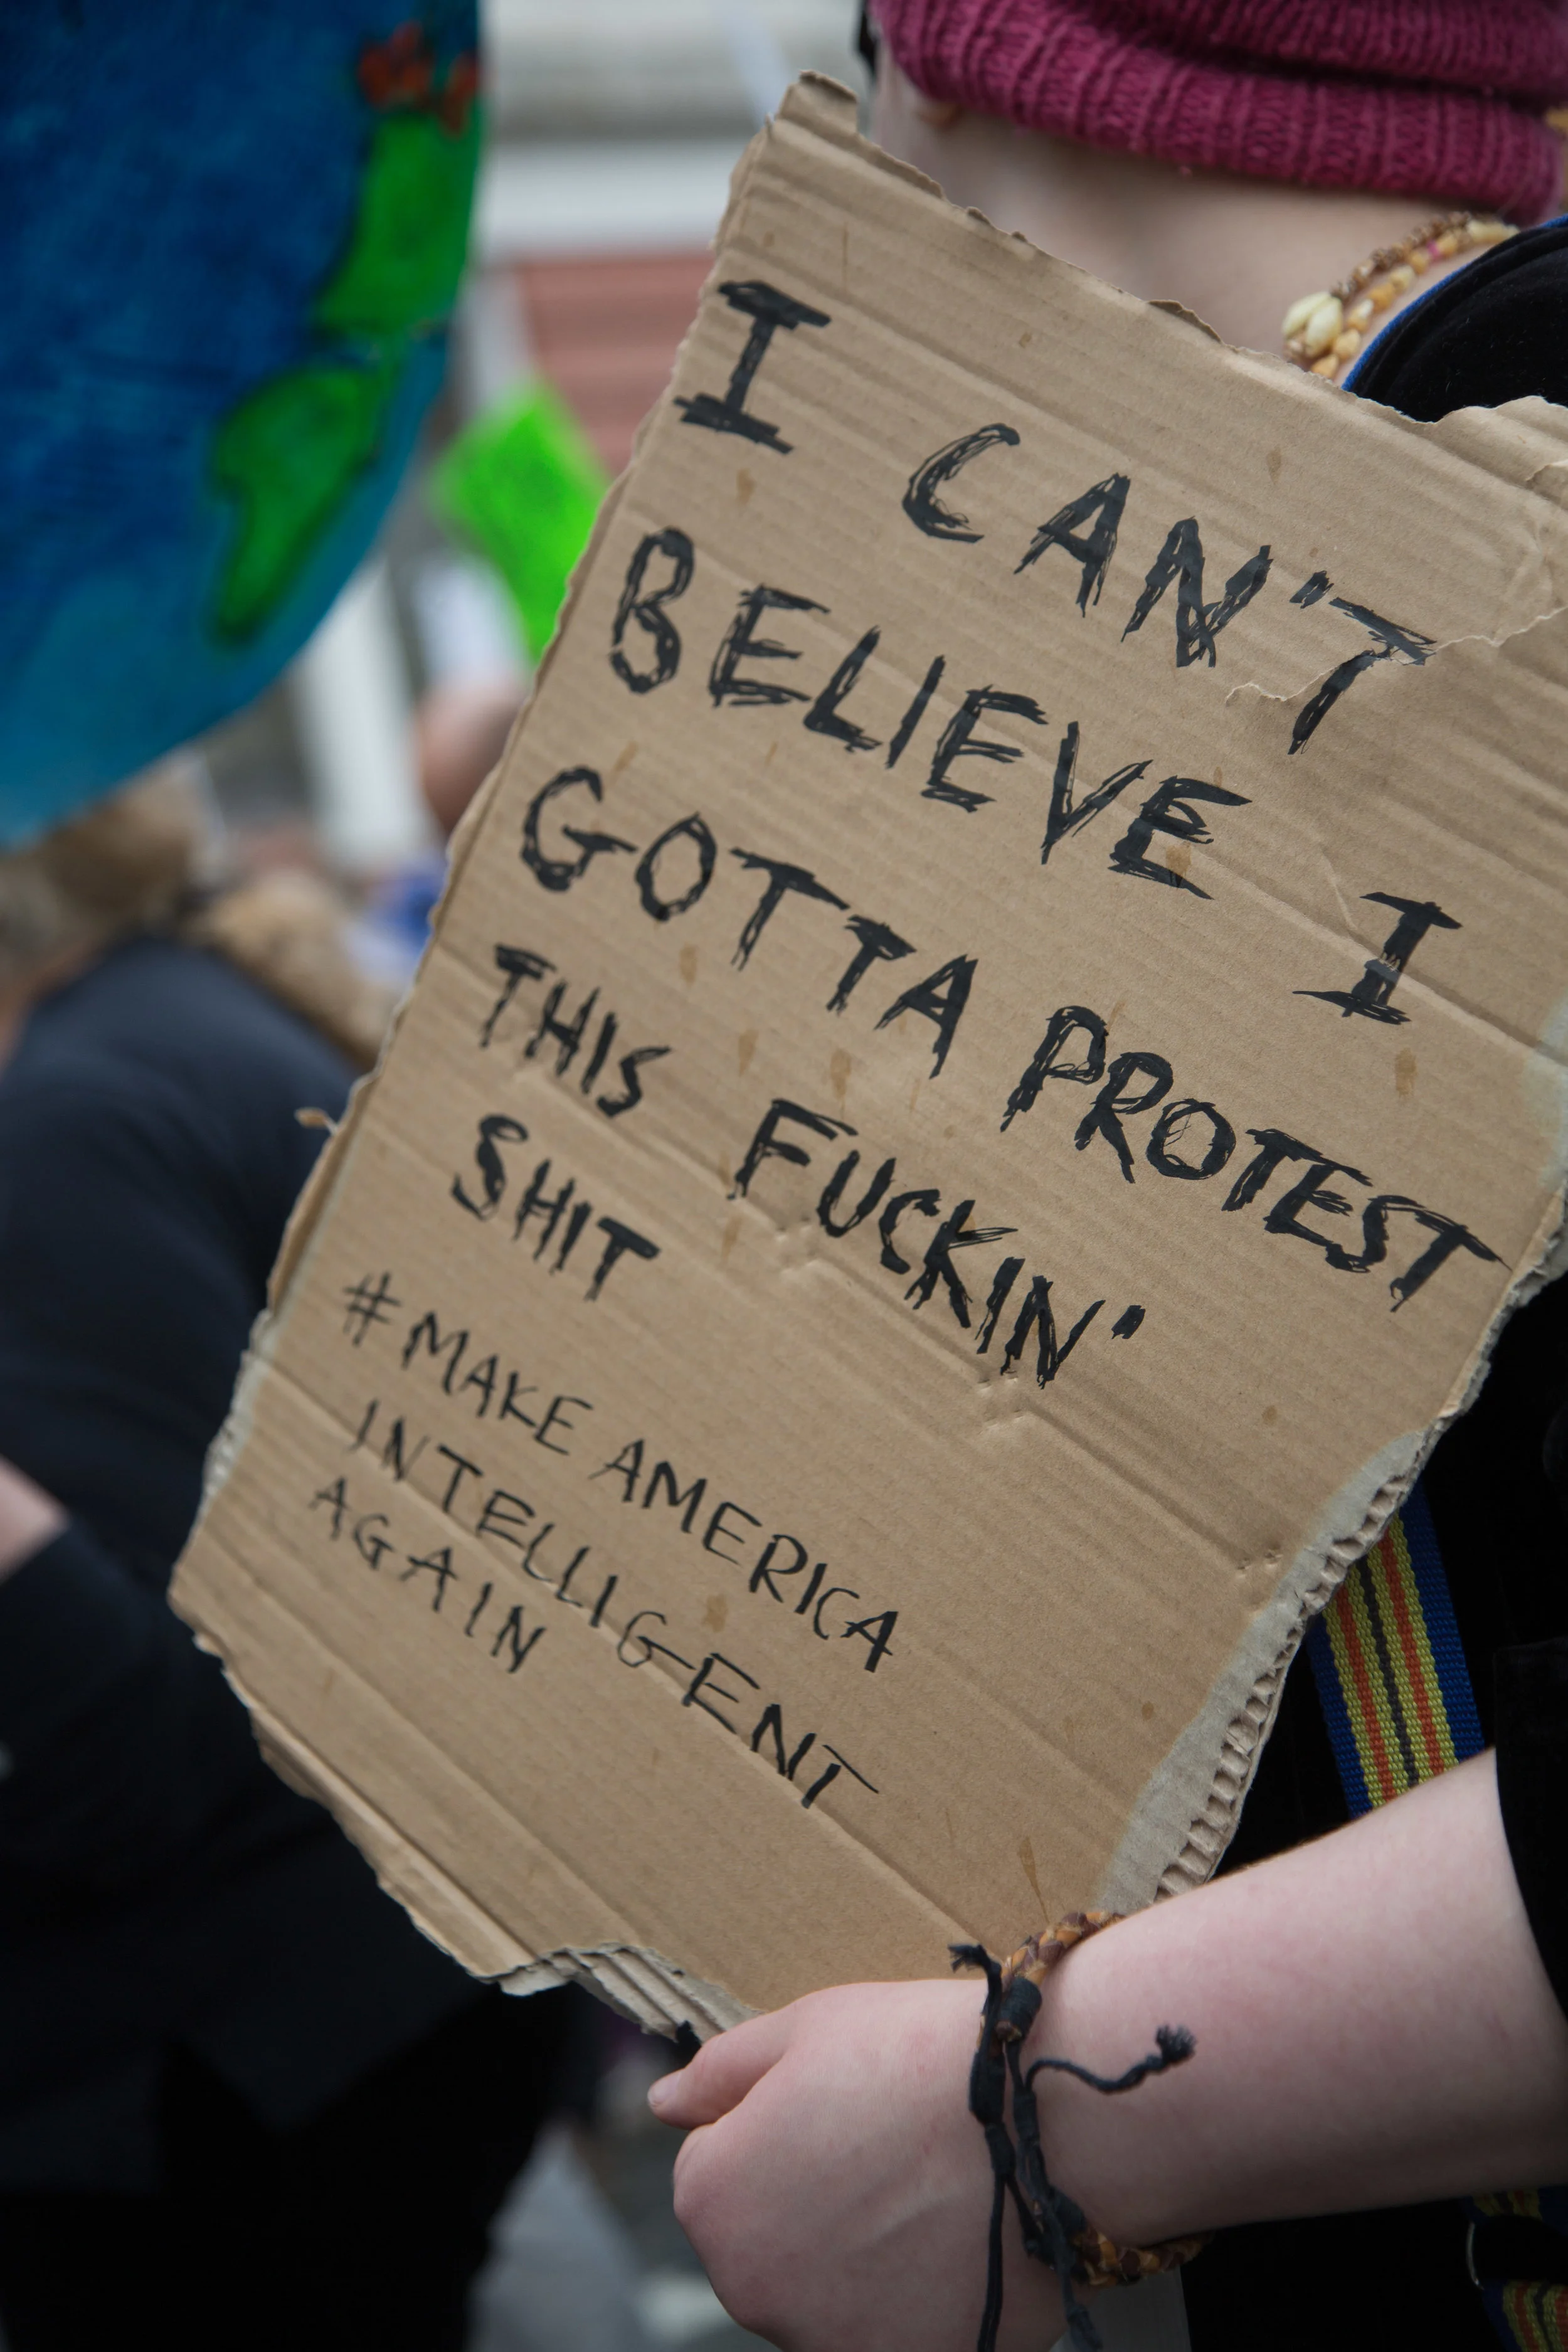 I CAN'T
BELIEVE I
GOTTA PROTEST
THIS FUCKIN'
SHIT
#MAKE AMERICA
INTELLIGENT
AGAIN